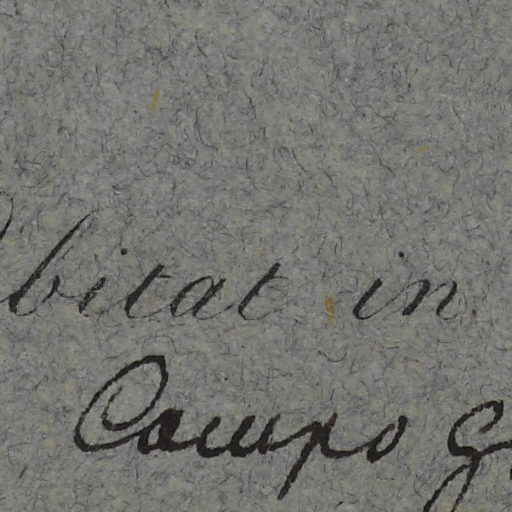 bitat in
Campo g